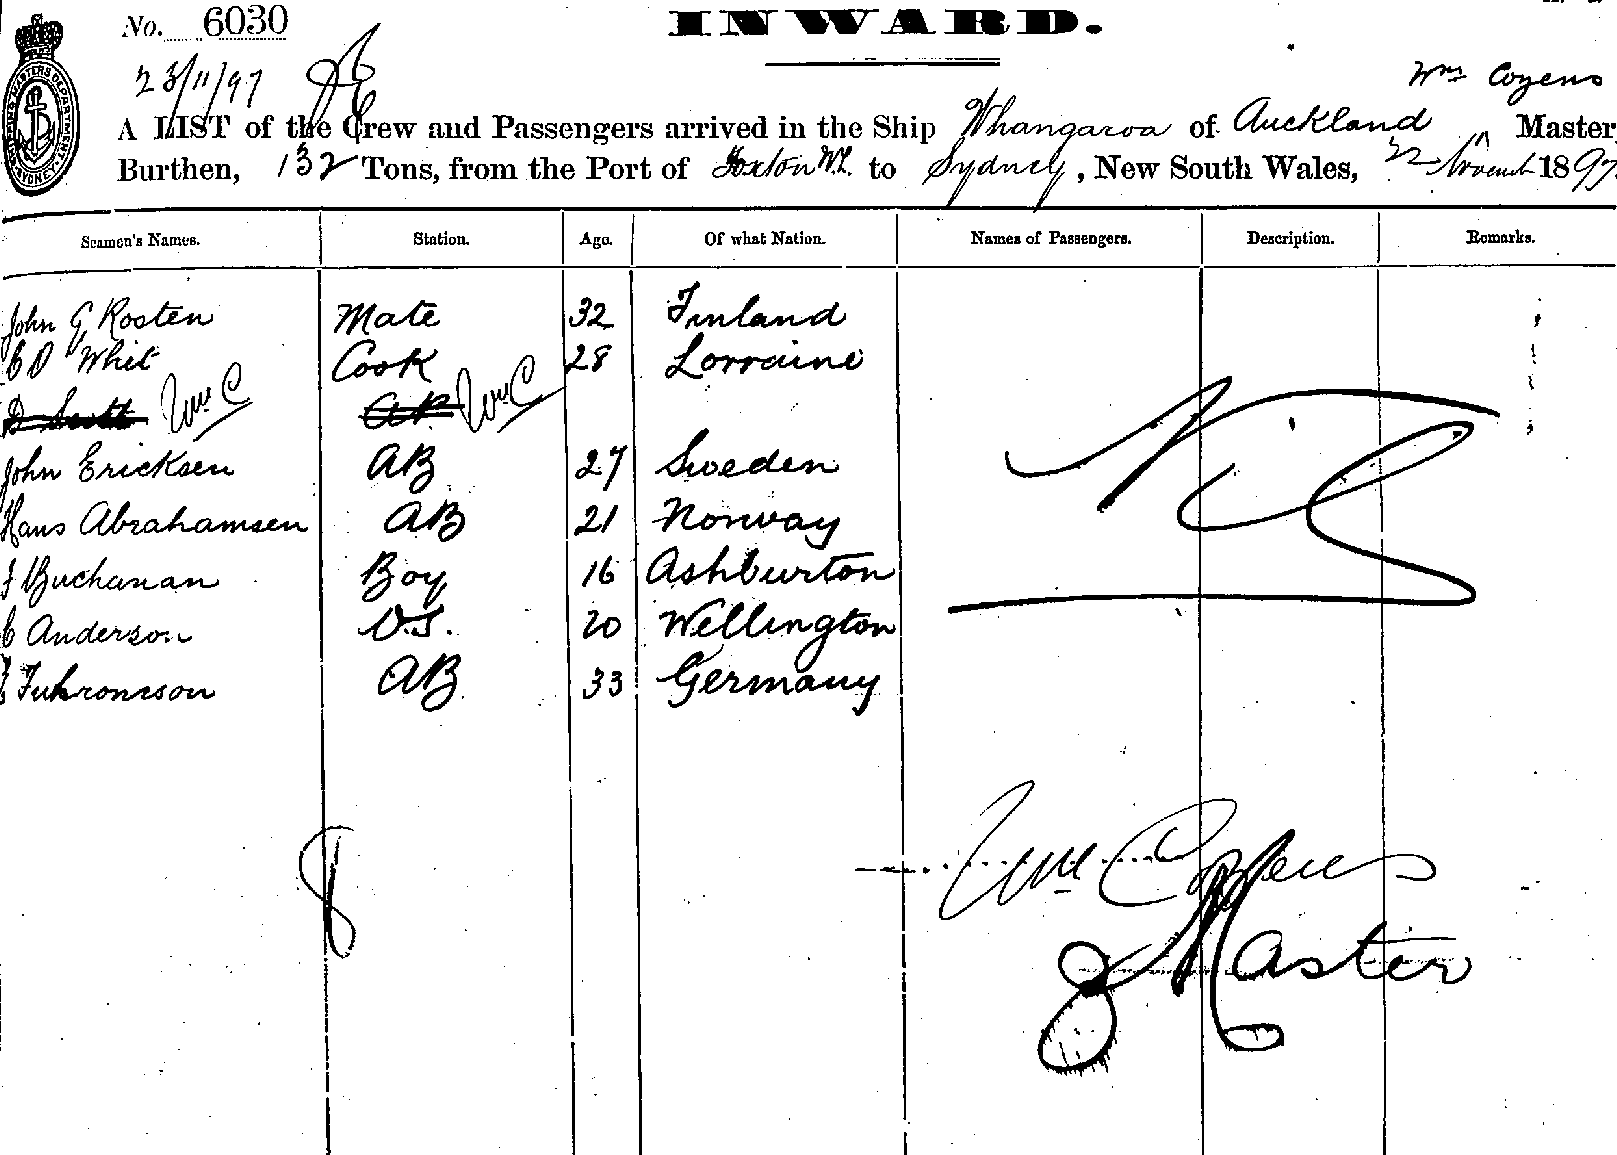 No. 6030 INWARD.
23/11/97
Wm Cozens
A LIST of the Crew and Passengers arrived in the Ship Whangaroa of Auckland ^ Master
Burthen, 132 Tons, from the Port of Foxton to Sydney, New South Wales, 22 November 1897.
Seamen's Names. Station. Age. Of what Nation. Names of Passengers. Description. Remarks.
John G Rosten Mate 32 Finland
C D Whit Cook 28 Lorraine
D Scott Wm C AB Wm C
John Ericksen AB 27 Sweden
Hans Abrahamsen AB 21 Norway
Nil
F Buchanan Boy 16 Ashburton
C Anderson O.S. 20 Wellington
Fuhromsson AB 33 Germany
8
Wm Cozens
Master